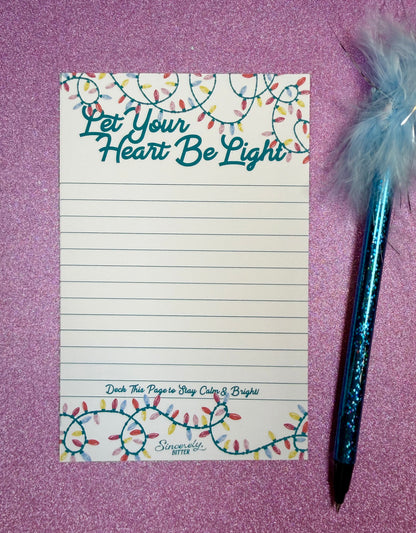 Let Your
Heart Be Light
Deck This Page to Stay Calm & Bright!
Sincerely,
BITTER